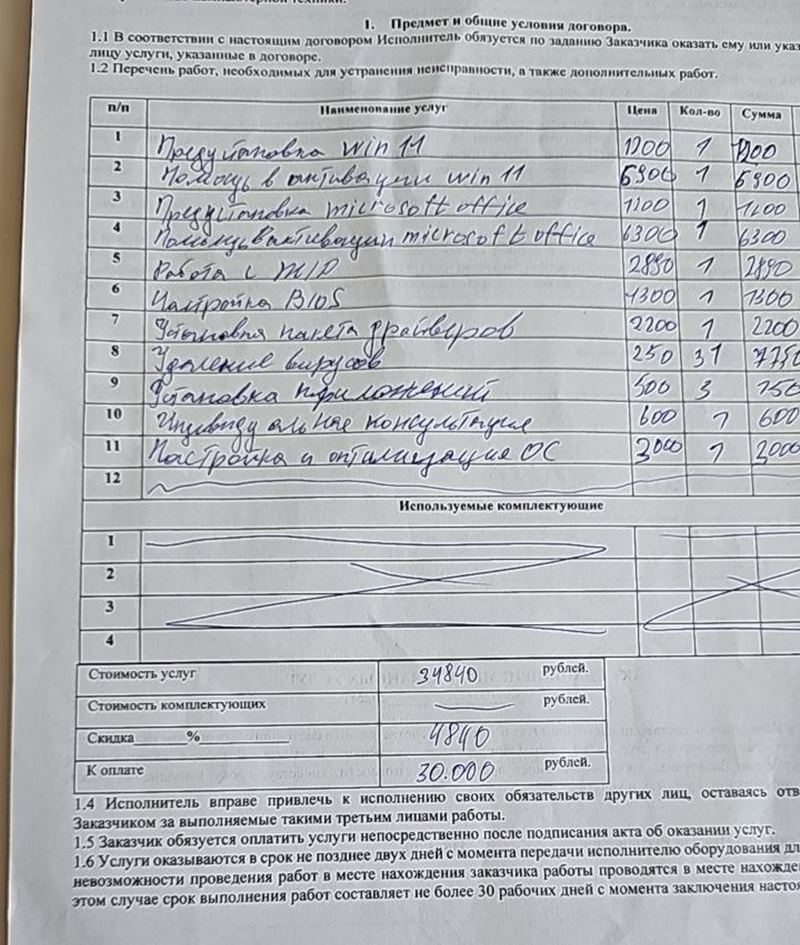 1. Предмет и общие условия договора.
1.1 В соответствии с настоящим договором Исполнитель обязуется по заданию Заказчика оказать ему или указ
лицу услуги, указанные в договоре.
1.2 Перечень работ, необходимых для устранения неисправности, а также дополнительных работ.
п/п Наименование услуг Цена Кол-во Сумма
1 Предустановка win 11 1200 1 1200
2 Помощь в активации win 11 6900 1 6900
3 Предустановка microsoft office 1100 1 1100
4 Помощь в активации microsoft office 6300 1 6300
5 Работа с 2890 1 2890
6 Настройка BIOS 1300 1 1300
7 Установка пакета драйверов 2200 1 2200
8 Удаление вирусов 250 31 775
9 Установка приложений 500 3 150
10 консультация 600 1 600
11 Настройка и ОС 3000 1 3000
12
Используемые комплектующие
1
2
3
4
Стоимость услуг 34840 рублей.
Стоимость комплектующих рублей.
Скидка______%________ 4840
К оплате 30.000 рублей.
1.4 Исполнитель вправе привлечь к исполнению своих обязательств других лиц, оставаясь отв
Заказчиком за выполняемые такими третьим лицами работы.
1.5 Заказчик обязуется оплатить услуги непосредственно после подписания акта об оказании услуг.
1.6 Услуги оказываются в срок не позднее двух дней с момента передачи исполнителю оборудования дл
невозможности проведения работ в месте нахождения заказчика работы проводятся в месте нахожде
этом случае срок выполнения работ составляет не более 30 рабочих дней с момента заключения насто